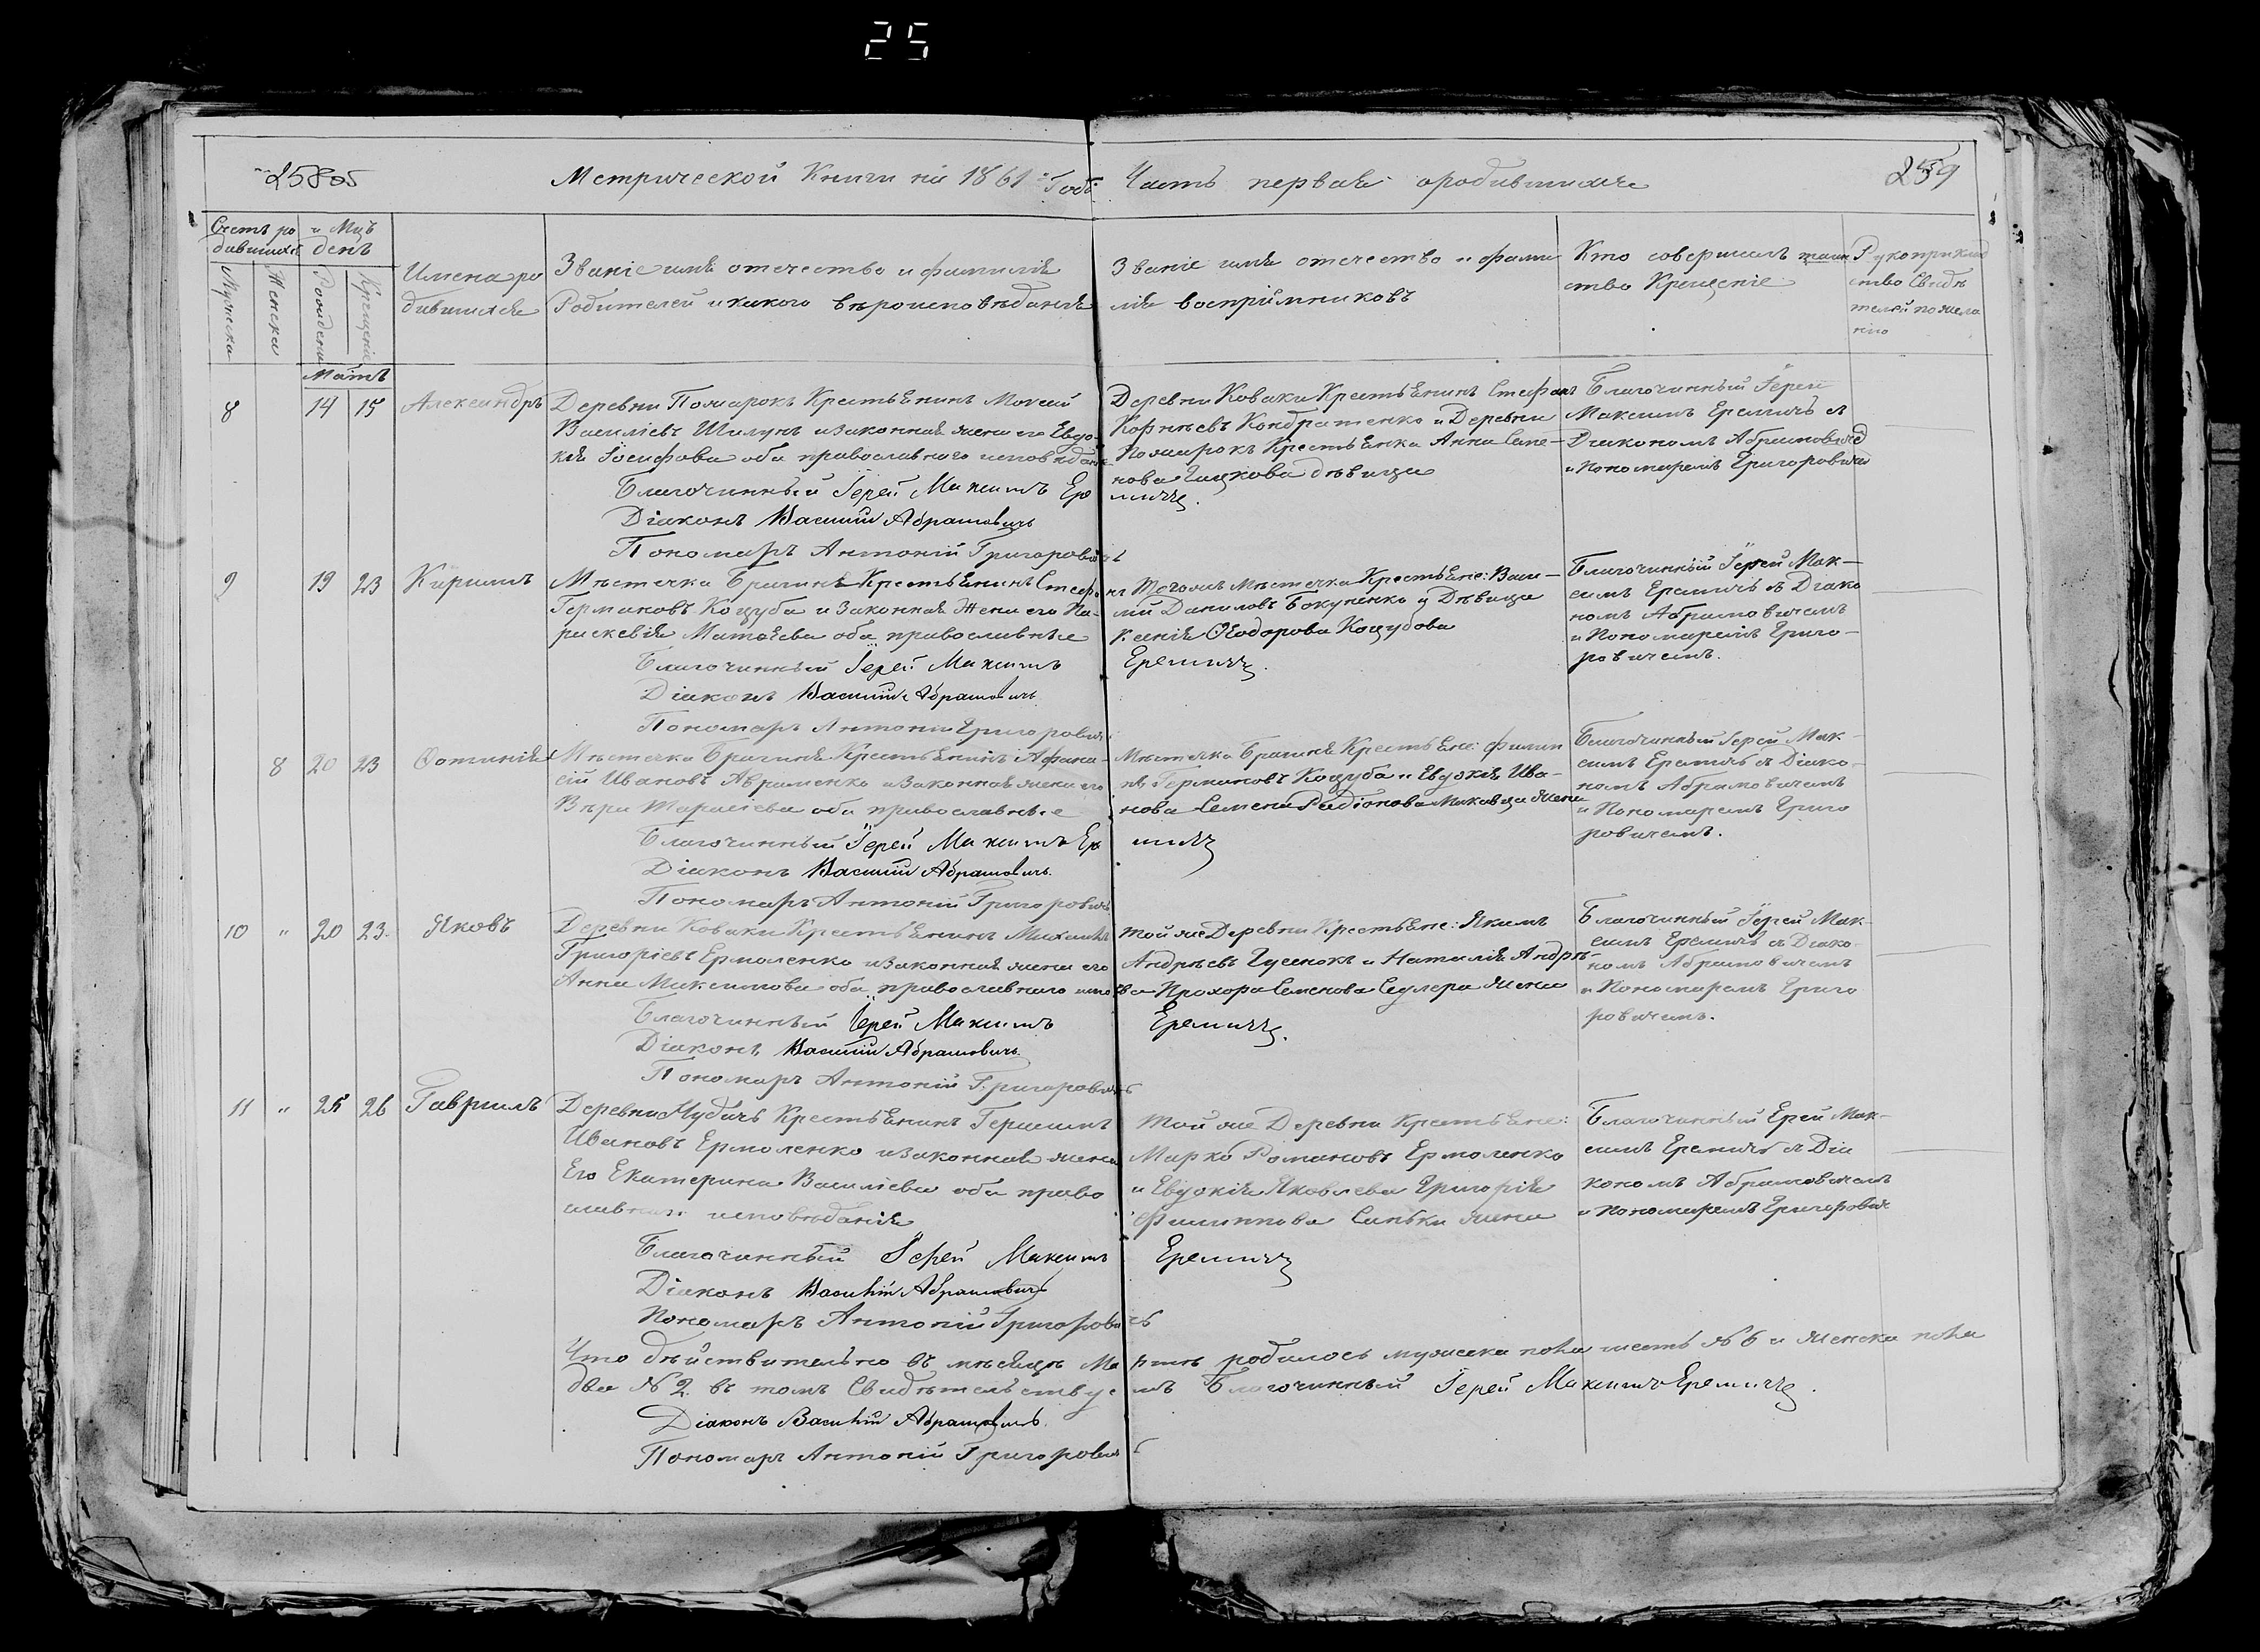 25
258об
Метрической Книги на 1861й Годъ
Часть первая о родившихся
259
Счетъ ро
дившихся
и Мцъ
день
Мужеска
Женска
Рожденія
Крещенія
Имена ро
дившихся
Званіе имя отечество и фамилія
Родителей и какого вѣроисповѣданія
Званіе имя отечество и фами
лія воспріимниковъ
Кто совершилъ таин
ство Крещенія
Рукоприклад
ство Свидѣ
телей по жела
нію
Мартъ
8 14 15 Александръ
Деревни Пожарокъ Крестьянинъ Мокій
Василіевъ Шилукъ и законная жена его Евдо-
кія Іосифова оба православного исповѣданія
Благочинный Іерей Максимъ Ере
миичъ
Діаконъ Василій Абрамовичъ
Пономаръ Антоній Григоровичъ
Деревни Коваки Крестьянинъ Стефанъ
Корнѣевъ Кондратенко и Деревни
Пожарокъ Крестьянка Анна Семе-
нова дѣвица
Благочинный Іерей
Максимъ Еремичъ съ
Діакономъ Абрамовичемъ
и Пономаремъ Григоровичемъ
9 19 23 Кирилъ
Мѣстечка Брагиня Крестьянинъ Стефанъ
Германовъ Коцуба и законная Жена его Па-
раскевія Матѳѣева оба православные
Благочинный Іерей Максимъ Еремичъ.
Діаконъ Василій Абрамовичъ
Пономаръ Антоній Григоровичъ
Тогожъ Мѣстечка Крестьяне: Васи-
лій Даниловъ Бокуненко и Дѣвица
Ксенія Ѳеодорова Коцубова
Благочинный Іерей Мак-
симъ Еремичъ съ Діако
номъ Абрамовичемъ
и Пономаремъ Григо-
ровичемъ.
8 20 23 Фотинія
Мѣстечка Брагиня Крестьянинъ Афана-
сій Ивановъ Авраменко и законная жена его
Вѣра Тарасіева оба православные
Благочинный Іерей Максимъ Еремичъ
Діаконъ Василій Абрамовичъ.
Пономаръ Антоній Григоровичъ
Мѣстечка Брагиня Крестьяне: Филип
пъ Германовъ Коцуба и Евдокія Ива-
нова Семена Радіонова жена
Благочинный Іерей Мак-
симъ Еремичъ съ Діако-
номъ Абрамовичемъ
и Пономаремъ Григо
ровичемъ.
10 " 20 23. Яковъ
Деревни Коваки Крестьянинъ Михаилъ
Григоріевъ Ермоленко и законная жена его
Анна Максимова оба православного испо
Благочинный Іерей Максимъ Еремичъ.
Діаконъ Василій Абрамовичъ
Пономаръ Антоній Григоровичъ
Той же Деревни Крестьяне: Якимъ
Андрѣевъ Гусенокъ и Наталія Андрѣ-
ева Прохора Семенова жена
Благочинный Іерей Мак-
симъ Еремичъ съ Діако-
номъ Абрамовичемъ
и Пономаремъ Григо
ровичемъ.
11 " 25 26 Гавріилъ
Деревни Крестьянинъ Герасимъ
Ивановъ Ермоленко и законная жена
Его Екатерина Василіева оба право
славного исповѣданія
Благочинный Іерей Максимъ Еремичъ
Діаконъ Василій Абрамовичъ
Пономаръ Антоній Григоровичъ
Той же Деревни Крестьяне:
Марко Романовъ Ермоленко
и Евдокія Яковлева Григорія
Филиппова Синьки жена
Благочинный Ерей Мак-
симъ Еремичъ съ Діа
кономъ Абрамовичемъ
и Пономаремъ Григорович
Что дѣйствительно въ мѣсяцѣ Мартѣ родилось мужеска пола шесть №6 и женска пола
два №2. въ томъ Свидѣтельствуемъ Благочинный Іерей Максимъ Еремичъ.
Діаконъ Василій Абрамовичъ.
Пономаръ Антоній Григоровичъ